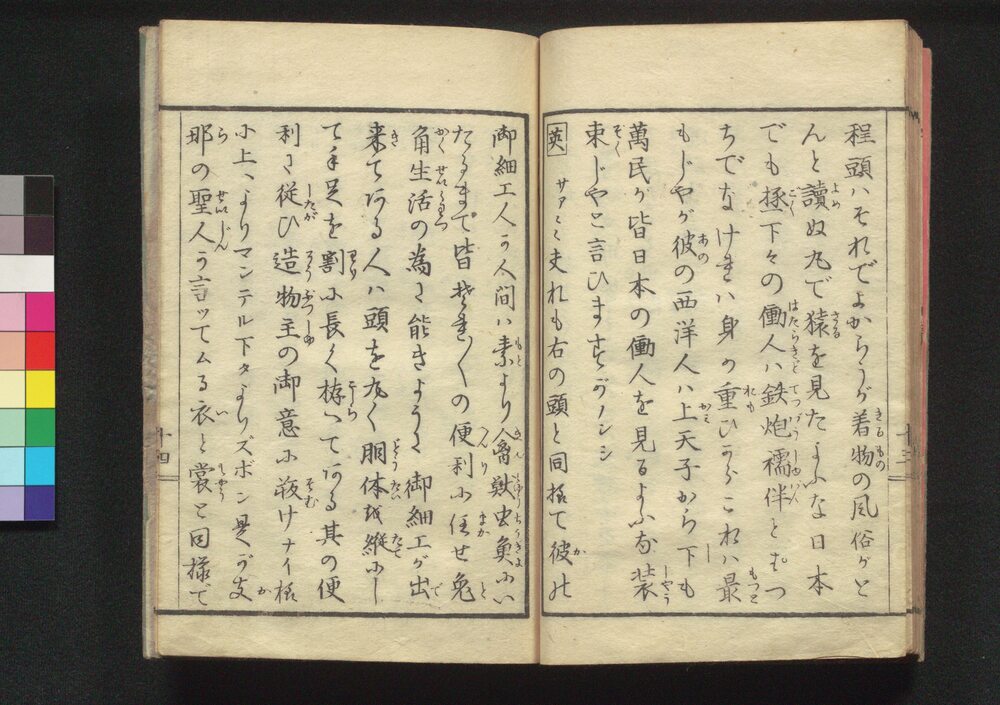 程頭ハそれでよからうが着物の風俗がと
んと讀ぬ丸で猿を見たよふな日本
でも極下々の働人ハ鉄炮襦伴と
ちでなけれハ身か重ひからこれハ最
もじやが彼の西洋人ハ上天子から下も
萬民が皆日本の働人を見るよふな装
束じやと言ひますがノンシ
英 サア〻夫れも右の頭と同様で彼の
御細工人か人間ハ素より人禽獣虫魚にい
たるまで皆それ〳〵の便利に任せ兎
角生活の為に能きように御細工が出
来てある人ハ頭を丸く胴体を縦にし
て手足を割に長く拵へてある其の便
利に従ひ造物主の御意に敬けナイ様
に上ハよりマンテル下タよりズボン是が支
那の聖人か言ッてムる衣と裳と同様で
十三
十四